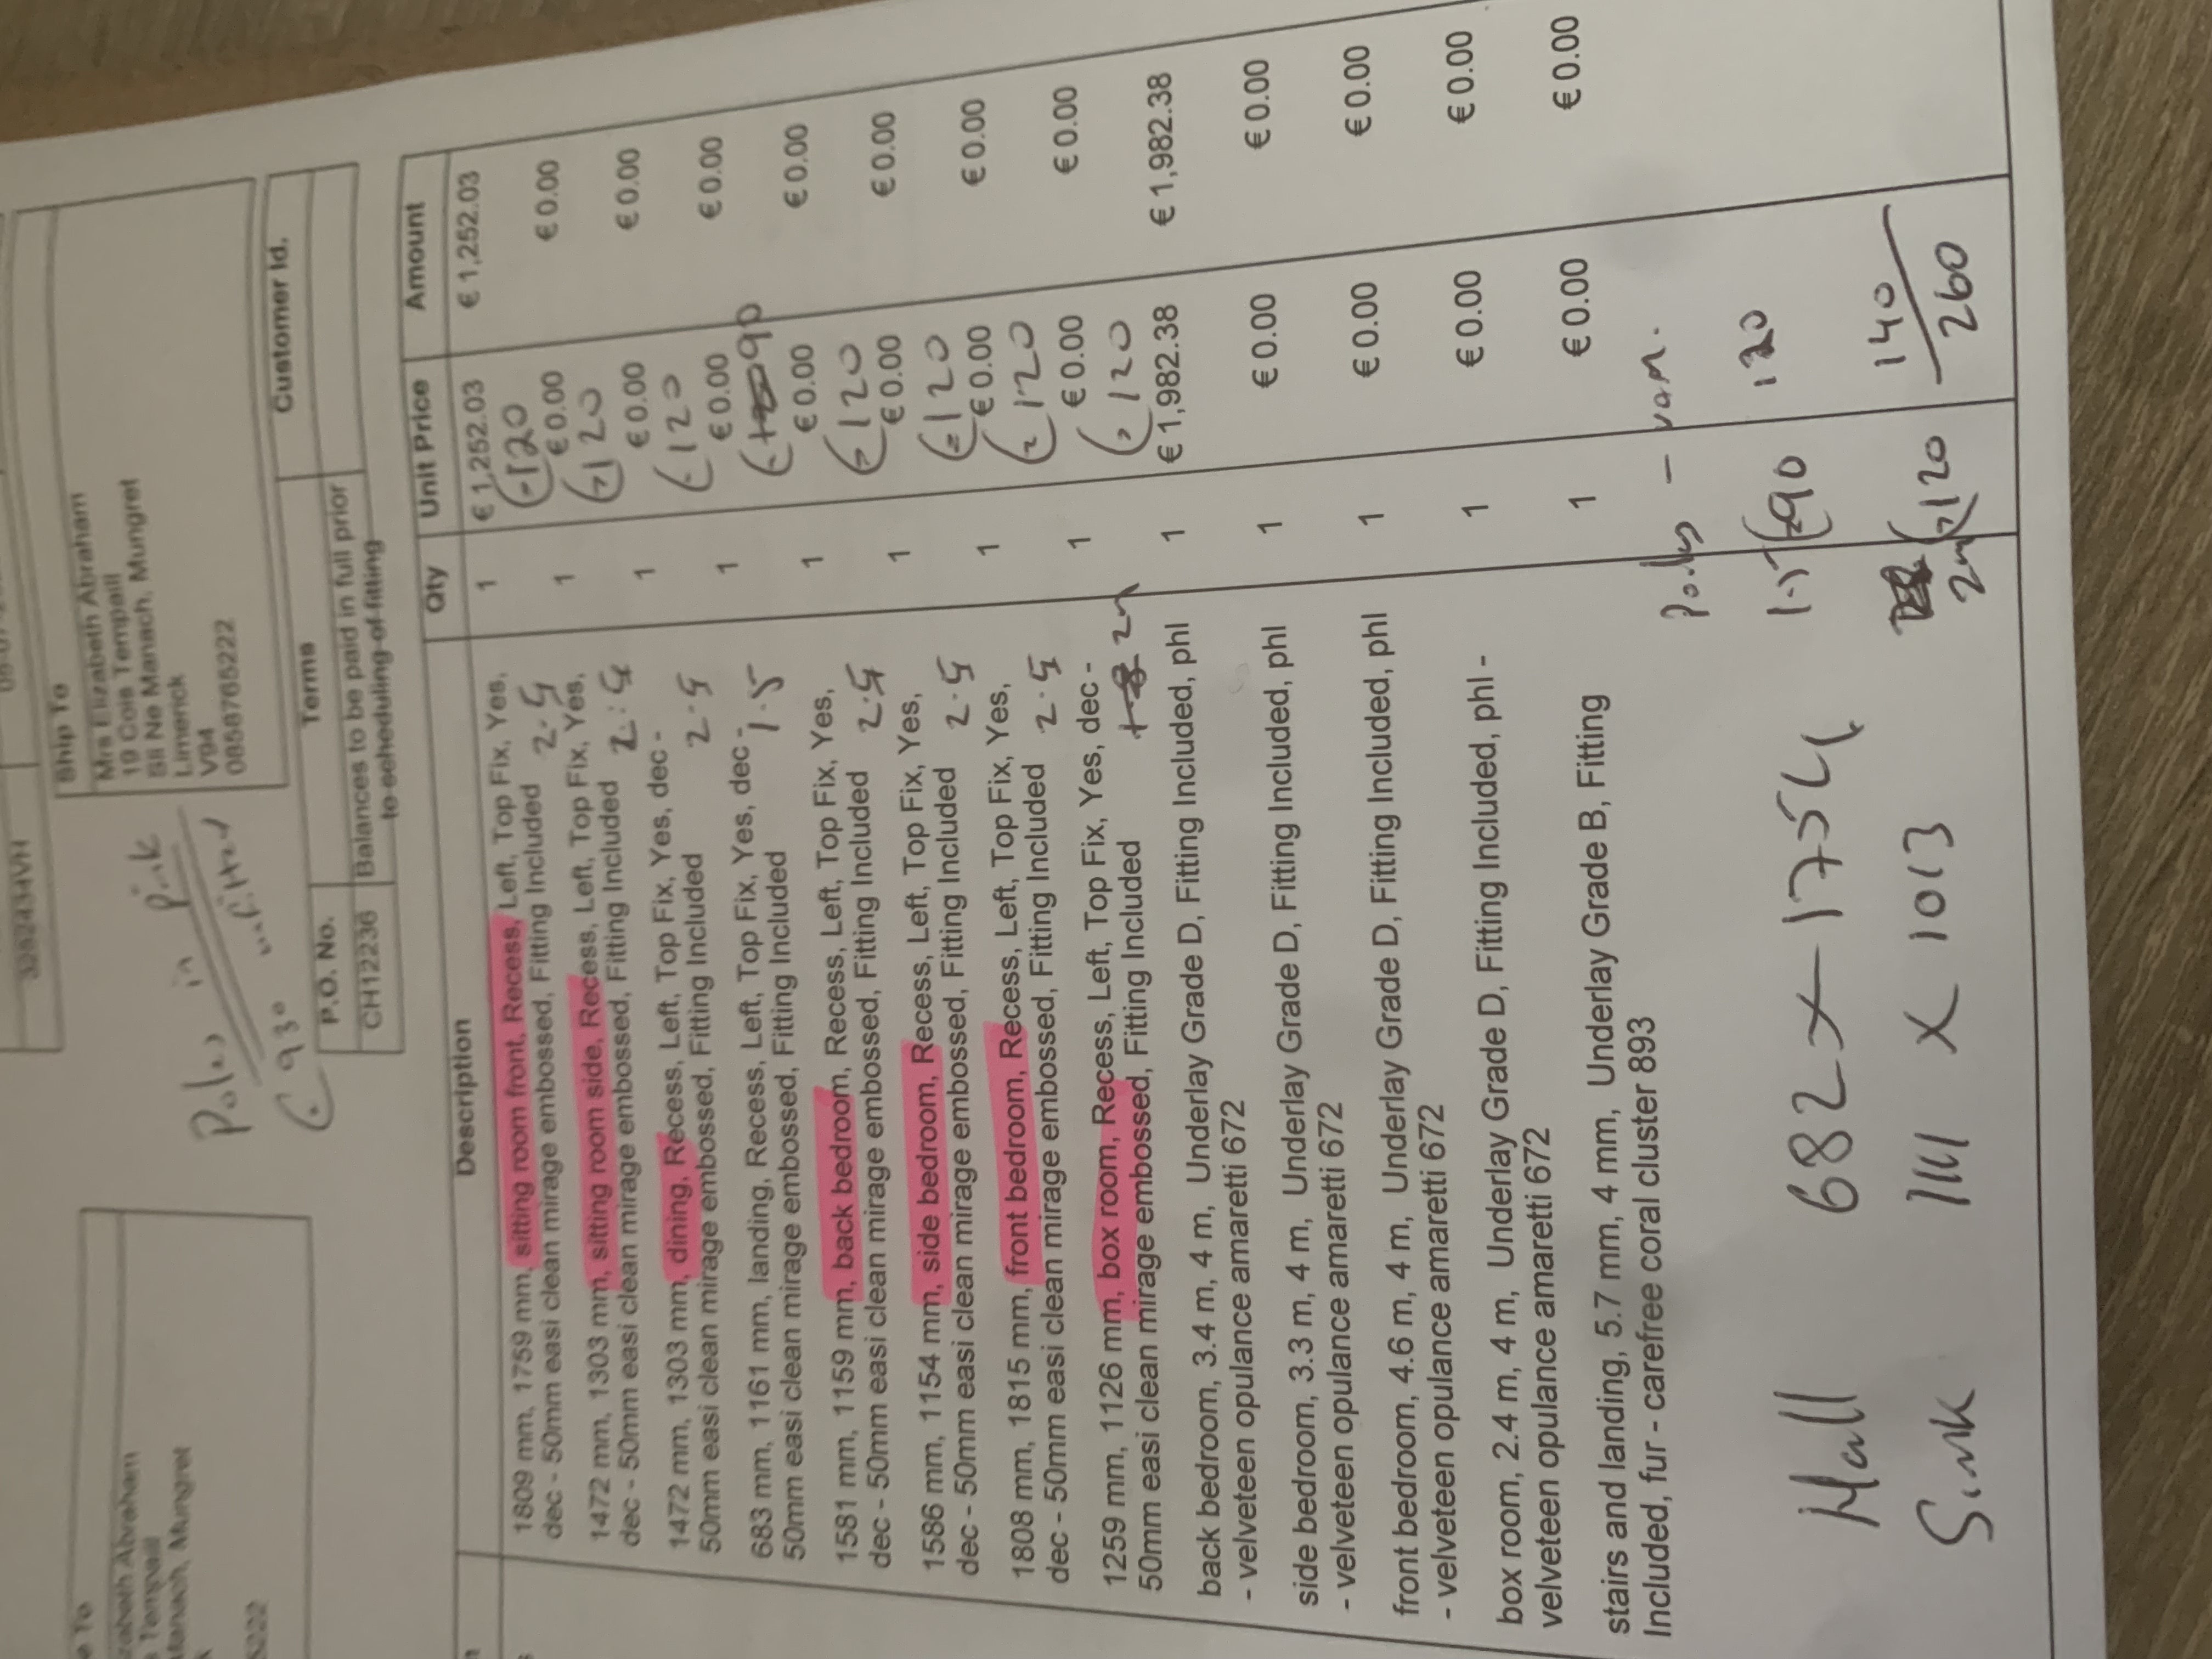 3282434VH
Ship To
Mrs Elizabeth Abraham
19 Cois Tempaill
Sli Na Manach, Mungret
Limerick
V94
0858765222
Poles in Pink
€930 Fitted
P.O. No.
Terms
Customer Id.
CH12236
Balances to be paid in full prior
to scheduling of fitting
Description
Qty
Unit Price
Amount
1809 mm, 1759 mm, sitting room front, Recess, Left, Top Fix, Yes, 1 € 1,252.03 € 1,252.03
dec - 50mm easi clean mirage embossed, Fitting Included 2.4 120
1472 mm, 1303 mm, sitting room side, Recess, Left, Top Fix, Yes, 1 € 0.00 € 0.00
dec - 50mm easi clean mirage embossed, Fitting Included 2.4 120
1472 mm, 1303 mm, dining, Recess, Left, Top Fix, Yes, dec - 1 € 0.00 € 0.00
50mm easi clean mirage embossed, Fitting Included 2.4 120
683 mm, 1161 mm, landing, Recess, Left, Top Fix, Yes, dec - 1 € 0.00 € 0.00
50mm easi clean mirage embossed, Fitting Included 1.5 90
1581 mm, 1159 mm, back bedroom, Recess, Left, Top Fix, Yes, 1 € 0.00 € 0.00
dec - 50mm easi clean mirage embossed, Fitting Included 2.4 120
1586 mm, 1154 mm, side bedroom, Recess, Left, Top Fix, Yes, 1 € 0.00 € 0.00
dec - 50mm easi clean mirage embossed, Fitting Included 2.4 120
1808 mm, 1815 mm, front bedroom, Recess, Left, Top Fix, Yes, 1 € 0.00 € 0.00
dec - 50mm easi clean mirage embossed, Fitting Included 2.4 120
1259 mm, 1126 mm, box room, Recess, Left, Top Fix, Yes, dec - 1 € 0.00 € 0.00
50mm easi clean mirage embossed, Fitting Included 2m 120
back bedroom, 3.4 m, 4 m, Underlay Grade D, Fitting Included, phl 1 € 1,982.38 € 1,982.38
- velveteen opulance amaretti 672
side bedroom, 3.3 m, 4 m, Underlay Grade D, Fitting Included, phl 1 € 0.00 € 0.00
- velveteen opulance amaretti 672
front bedroom, 4.6 m, 4 m, Underlay Grade D, Fitting Included, phl 1 € 0.00 € 0.00
- velveteen opulance amaretti 672
box room, 2.4 m, 4 m, Underlay Grade D, Fitting Included, phl - 1 € 0.00 € 0.00
velveteen opulance amaretti 672
stairs and landing, 5.7 mm, 4 mm, Underlay Grade B, Fitting 1 € 0.00 € 0.00
Included, fur - carefree coral cluster 893
Poles - van.
Hall 682 x 1754 1.5 €90 120
Sink 1111 x 1013 2m 120 140
260